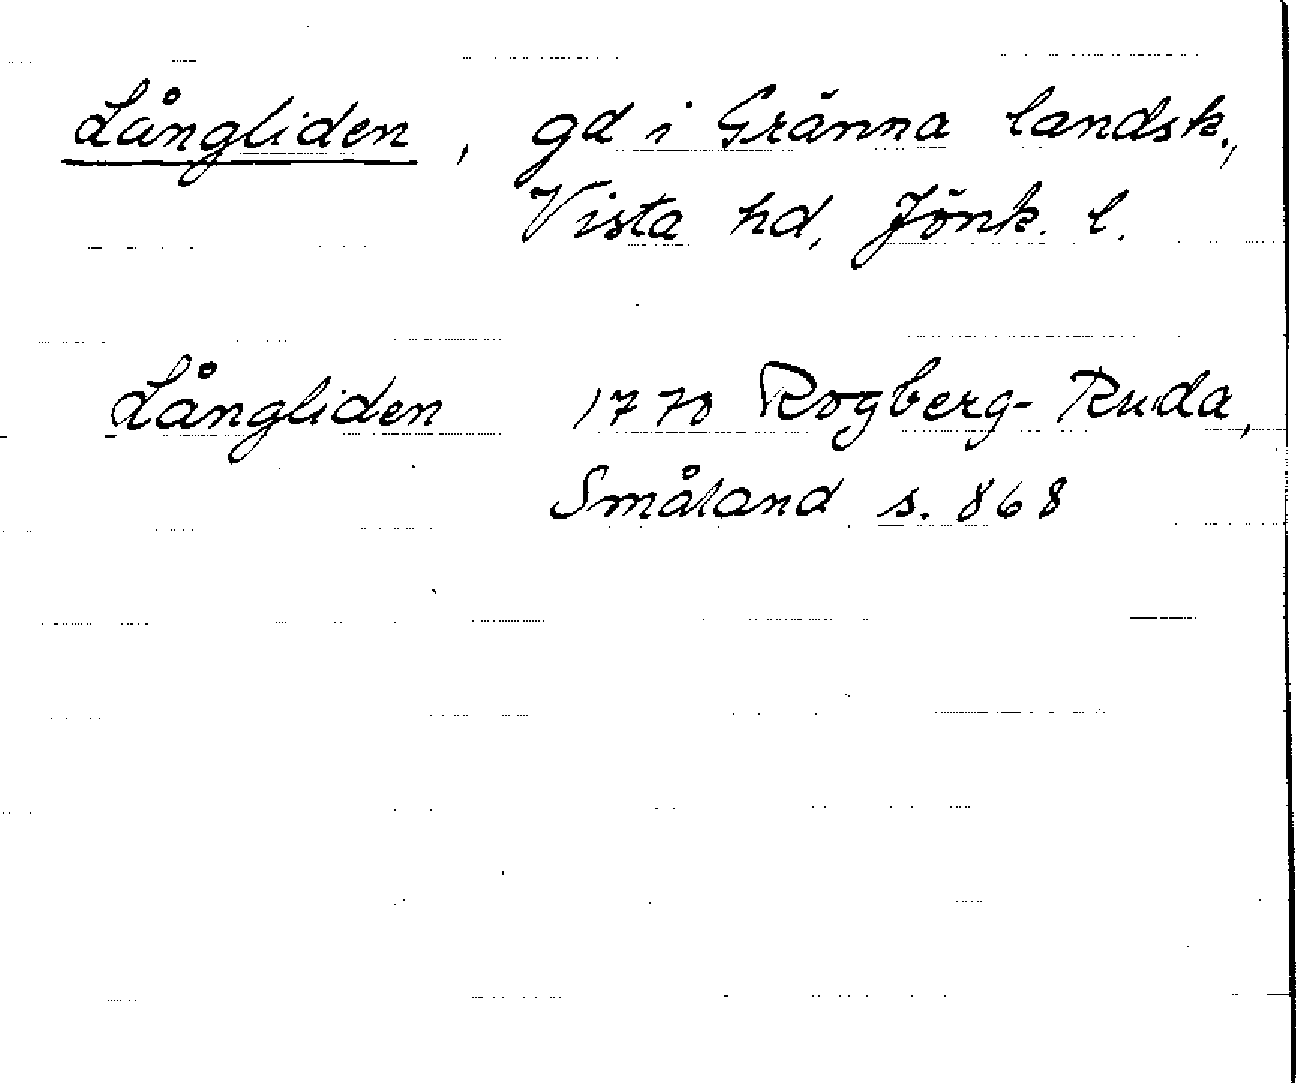 Långliden, gd i Gränna landsk.,
Vista hd, Jönk. l.
Långliden 1770 Rogberg-Ruda,
Småland s. 868